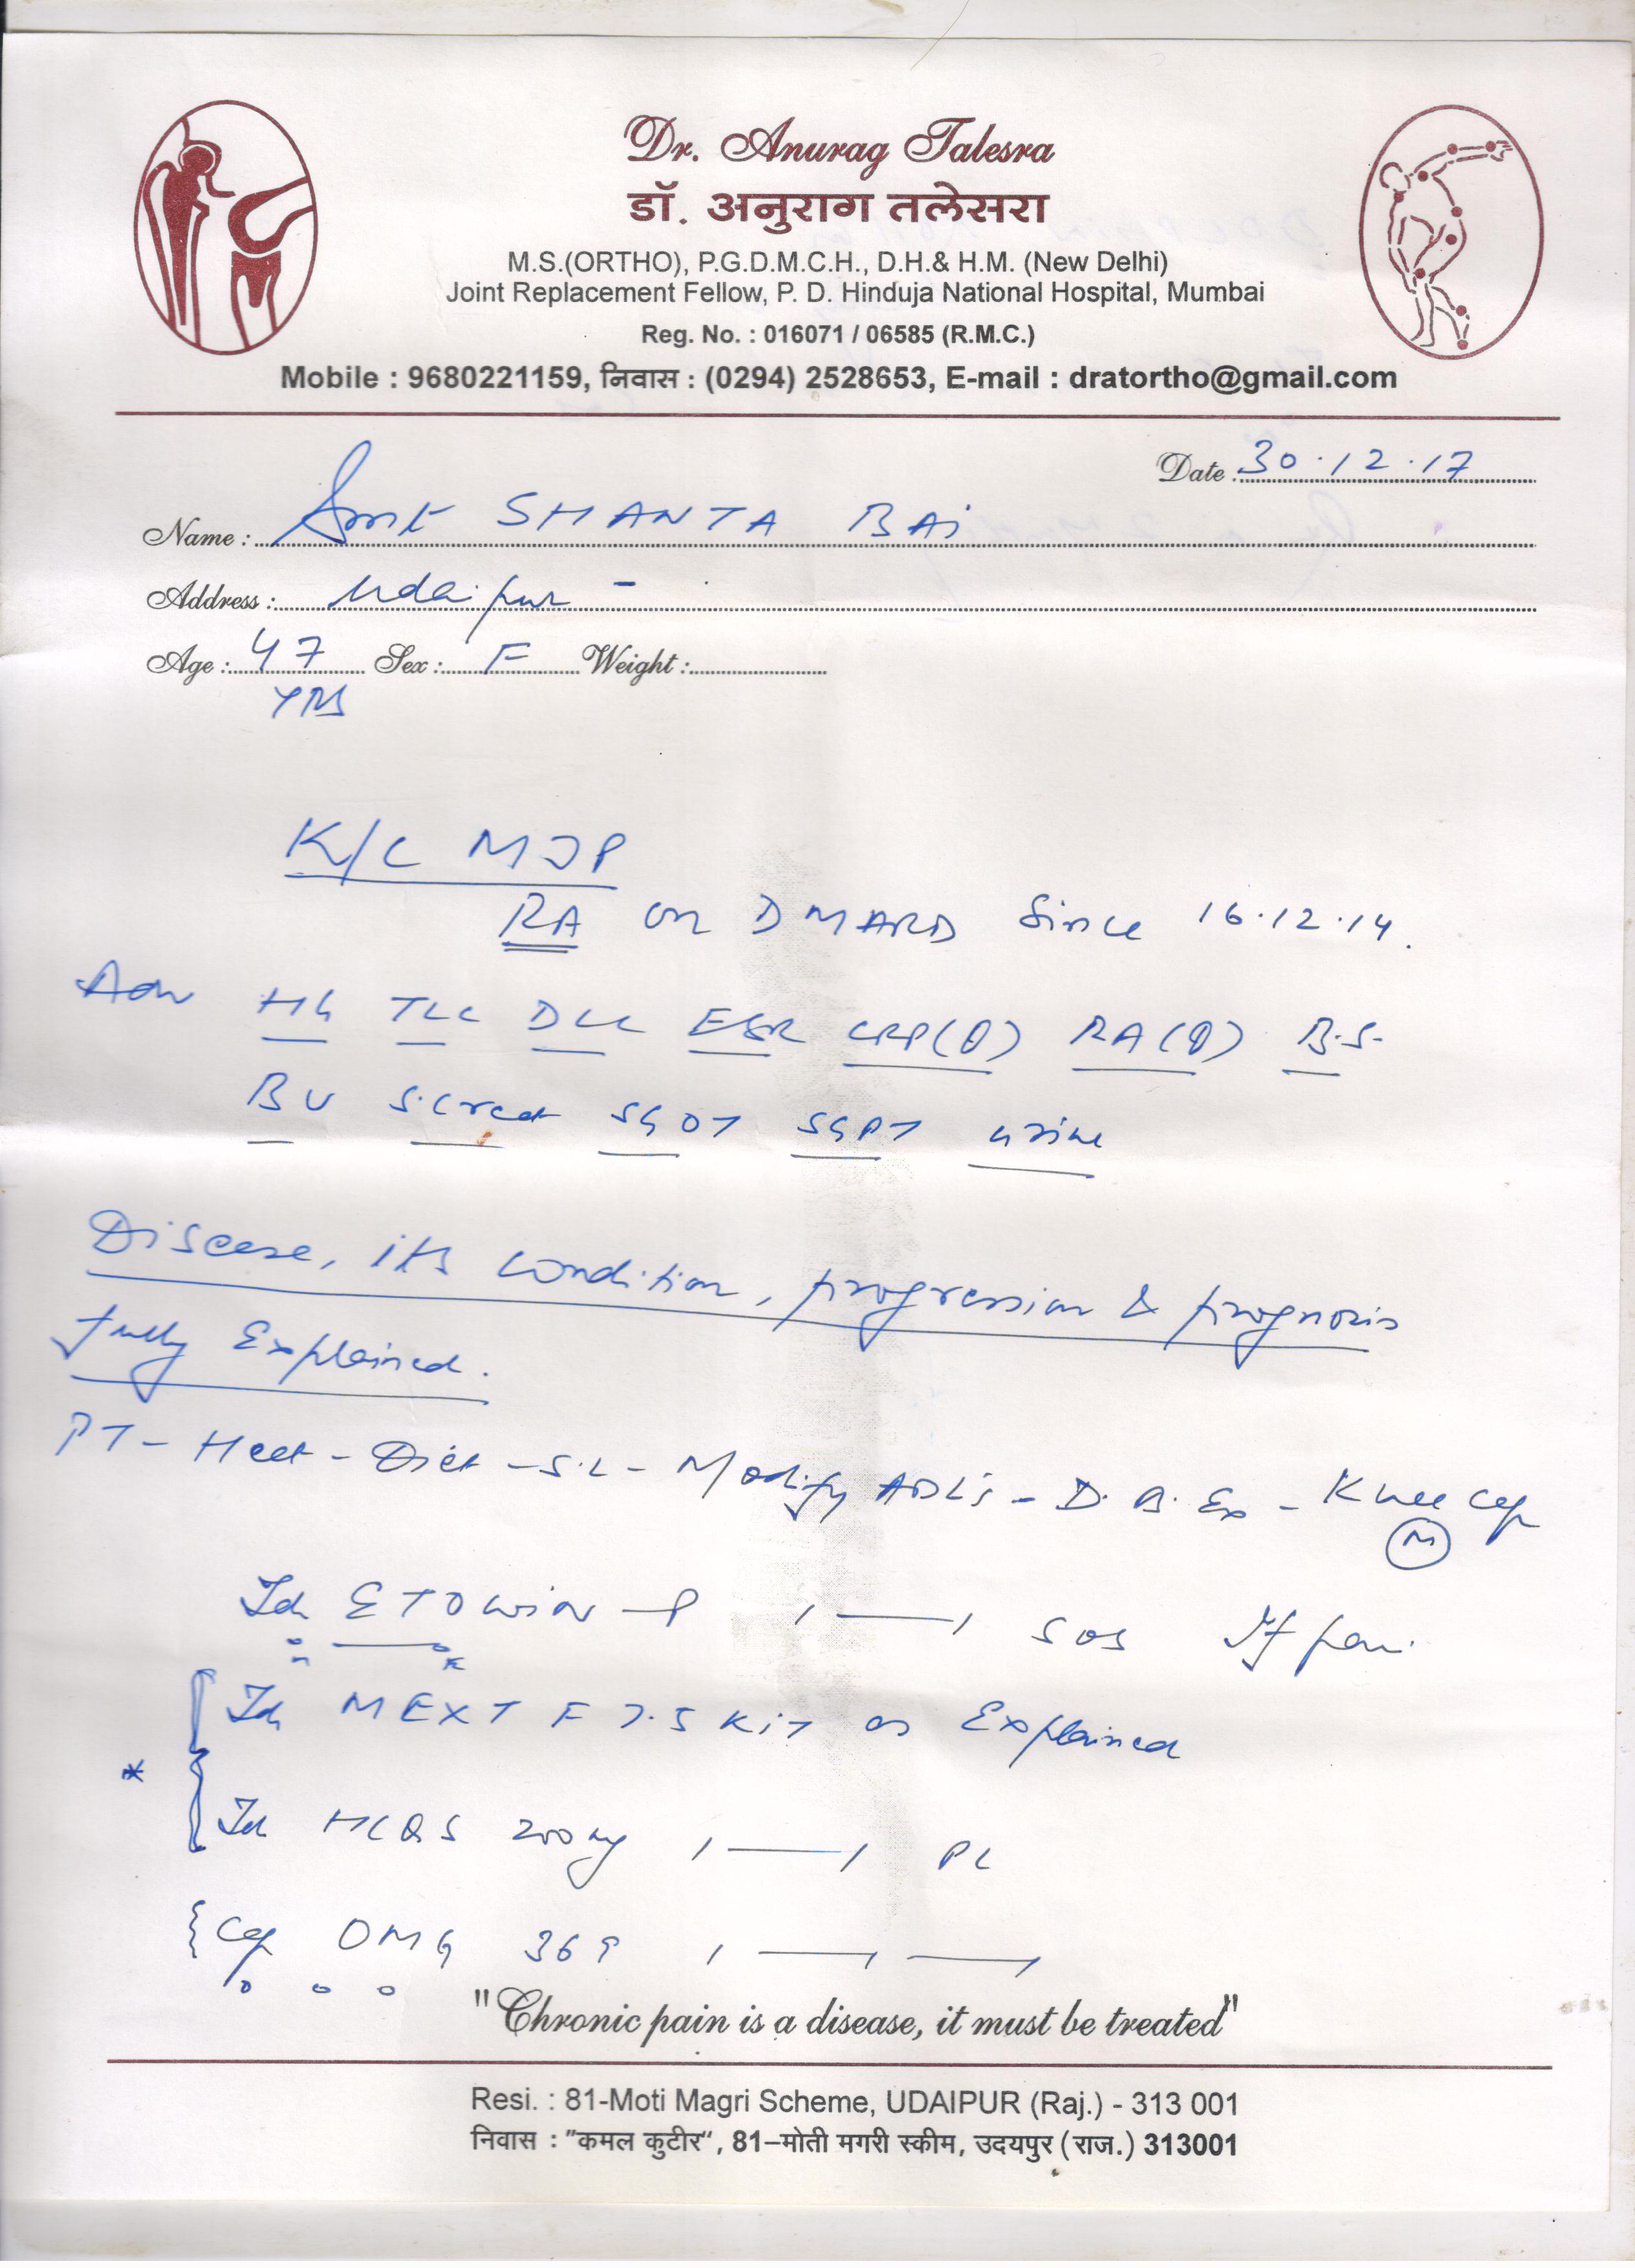 Dr. Anurag Talesra
डॉ. अनुराग तलेसरा
M.S.(ORTHO), P.G.D.M.C.H., D.H.& H.M. (New Delhi)
Joint Replacement Fellow, P. D. Hinduja National Hospital, Mumbai
Reg. No. : 016071 / 06585 (R.M.C.)
Mobile : 9680221159, निवास : (0294) 2528653, E-mail : dratortho@gmail.com
Date : 30.12.17
Name : Smt SHANTA BAi
Address : Udaipur -
Age : 47 Sex : F Weight :
YRS
K/C MJP
RA on DMARD Since 16.12.14.
Adv HG TLC DLC ESR CRP(Q) RA(Q) B.S.
BU S.Creat SGOT SGPT urine
Disease, its condition, progression & prognosis
fully Explained.
PT - Heat - Diet - S.L - Modify ADL's - D.B. Ex - Knee Cap
M
Tab ETOWIN-P 1 — 1 SOS If pain
Tab MEXT F 7.5 KiT as Explained
* Tab HCQS 200mg 1 — 1 PC
Cap OMG 369 1 — —
"Chronic pain is a disease, it must be treated"
Resi. : 81-Moti Magri Scheme, UDAIPUR (Raj.) - 313 001
निवास : "कमल कुटीर", 81-मोती मगरी स्कीम, उदयपुर (राज.) 313001